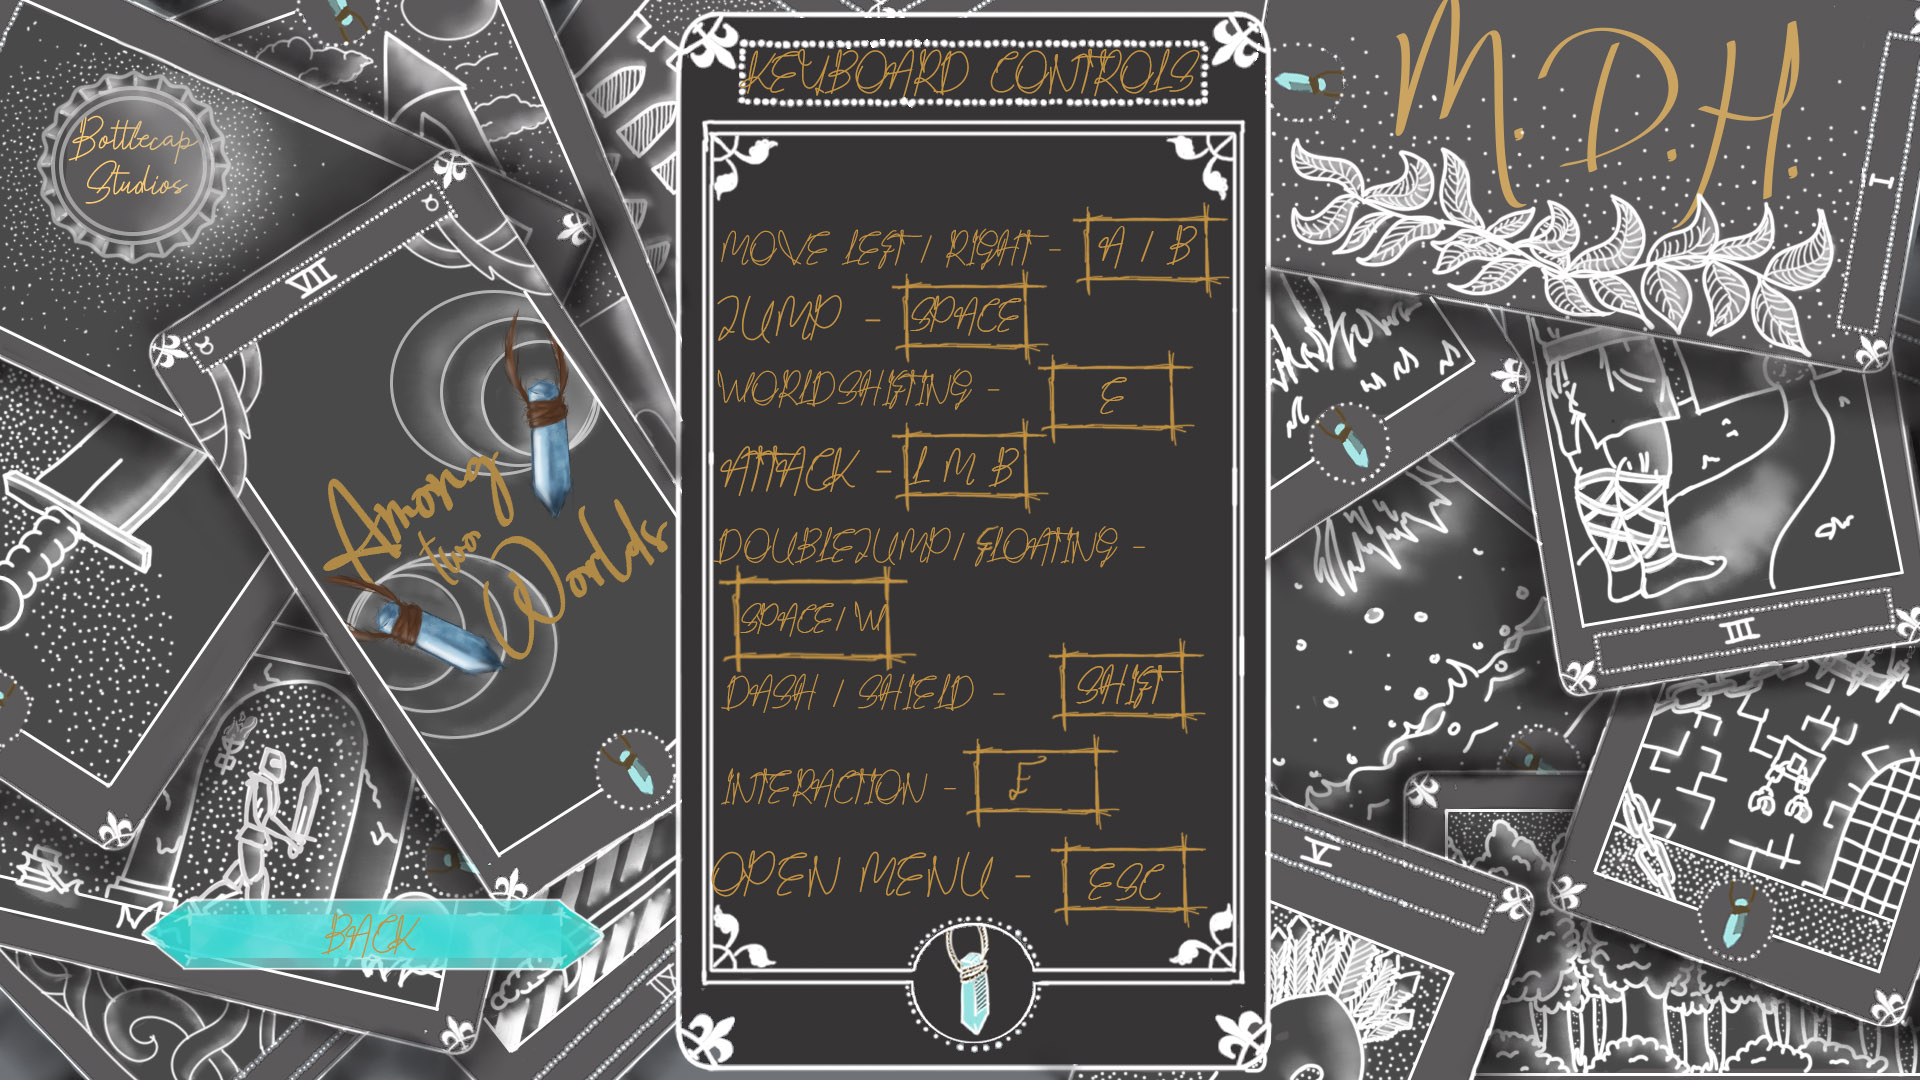 Bottlecap
Studios
VIII
Among
two
Worlds
BACK
KEYBOARD CONTROLS
MOVE LEFT / RIGHT - A / B
JUMP - SPACE
WORLDSHIFTING - E
ATTACK - L M B
DOUBLEJUMP / FLOATING -
SPACE / W
DASH / SHIELD - SHIFT
INTERACTION - F
OPEN MENU - ESC
M.D.H.
I
III
V